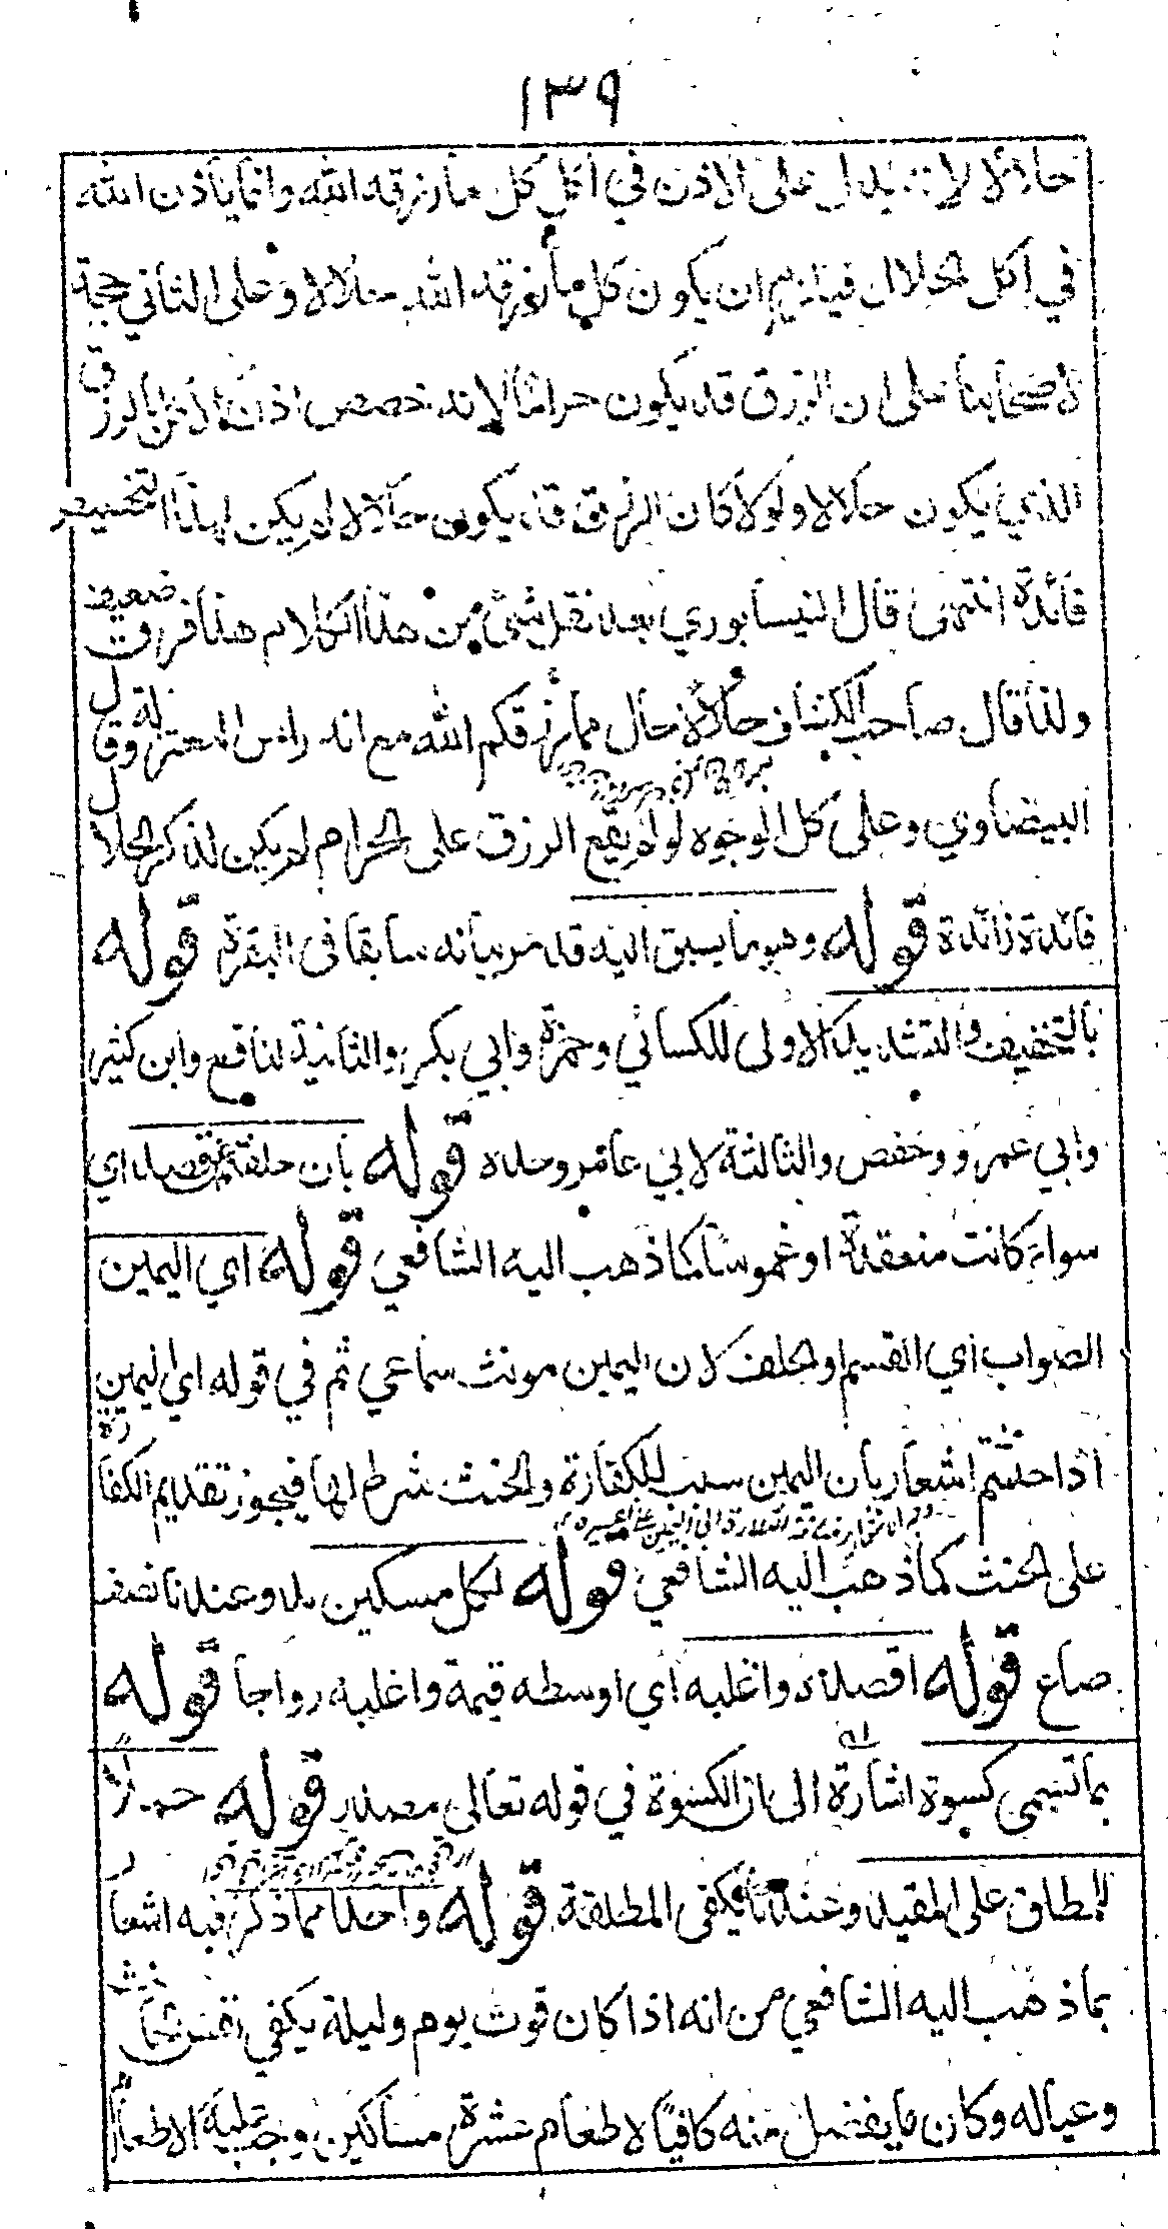 ١٣٩
حلالا لا يدل على الاذن في اكل كل ما رزقه الله وانما ياذن الله
في اكل الحلال فيلزم ان يكون كل ما رزقه الله حلالا وعلى الثاني حجة
لاصحابنا على ان الرزق قد يكون حراما لانه خصص اذن الاكل بالرزق
الذي يكون حلالا ولولا كان الرزق قد يكون حلالا لم يكن لهذا التخصيص
فائدة انتهى قال النيسابوري بعد نقل شئ من هذا الكلام هذا فرق ضعيف
ولذا قال صاحب الكشاف حلالا حال مما رزقكم الله مع انه راس المعتزلة وقال
البيضاوي وعلى كل الوجوه لو لم يقع الرزق على الحرام لم يكن لذكر الحلال
فائدة زائدة قوله وهو ما يسبق اليه قد مر بيانه سابقا فى البقرة قوله
بالتخفيف والتشديد الاولى للكسائي وحمزة وابي بكر والثانية لنافع وابن كثير
وابي عمرو وحفص والثالثة لابن عامر وحده قوله بان حلفتم عن قصد اي
سواء كانت منعقدة او غموسا كما ذهب اليه الشافعي قوله اي اليمين
الصواب اي القسم او الحلف لان اليمين مونث سماعي ثم في قوله اي اليمين
اذا حنثتم اشعار بان اليمين سبب للكفارة والحنث شرط لها فيجوز تقديم الكفارة
على الحنث كما ذهب اليه الشافعي قوله لكل مسكين مد وعندنا نصف
صاع قوله اقصده واغلبه اي اوسطه قيمة واغلبه رواجا قوله
بما تسمى كسوة اشارة الى ان الكسوة في قوله تعالى مصدر قوله حملا
للمطلق على المقيد وعندنا يكفى المطلقة قوله واحدا مما ذكر فيه اشعار
بما ذهب اليه الشافعي من انه اذا كان قوت يوم وليلة يكفي نفس
وعياله وكان ما يفضل منه كافيا لاطعام عشرة مساكين وجب عليه الاطعام